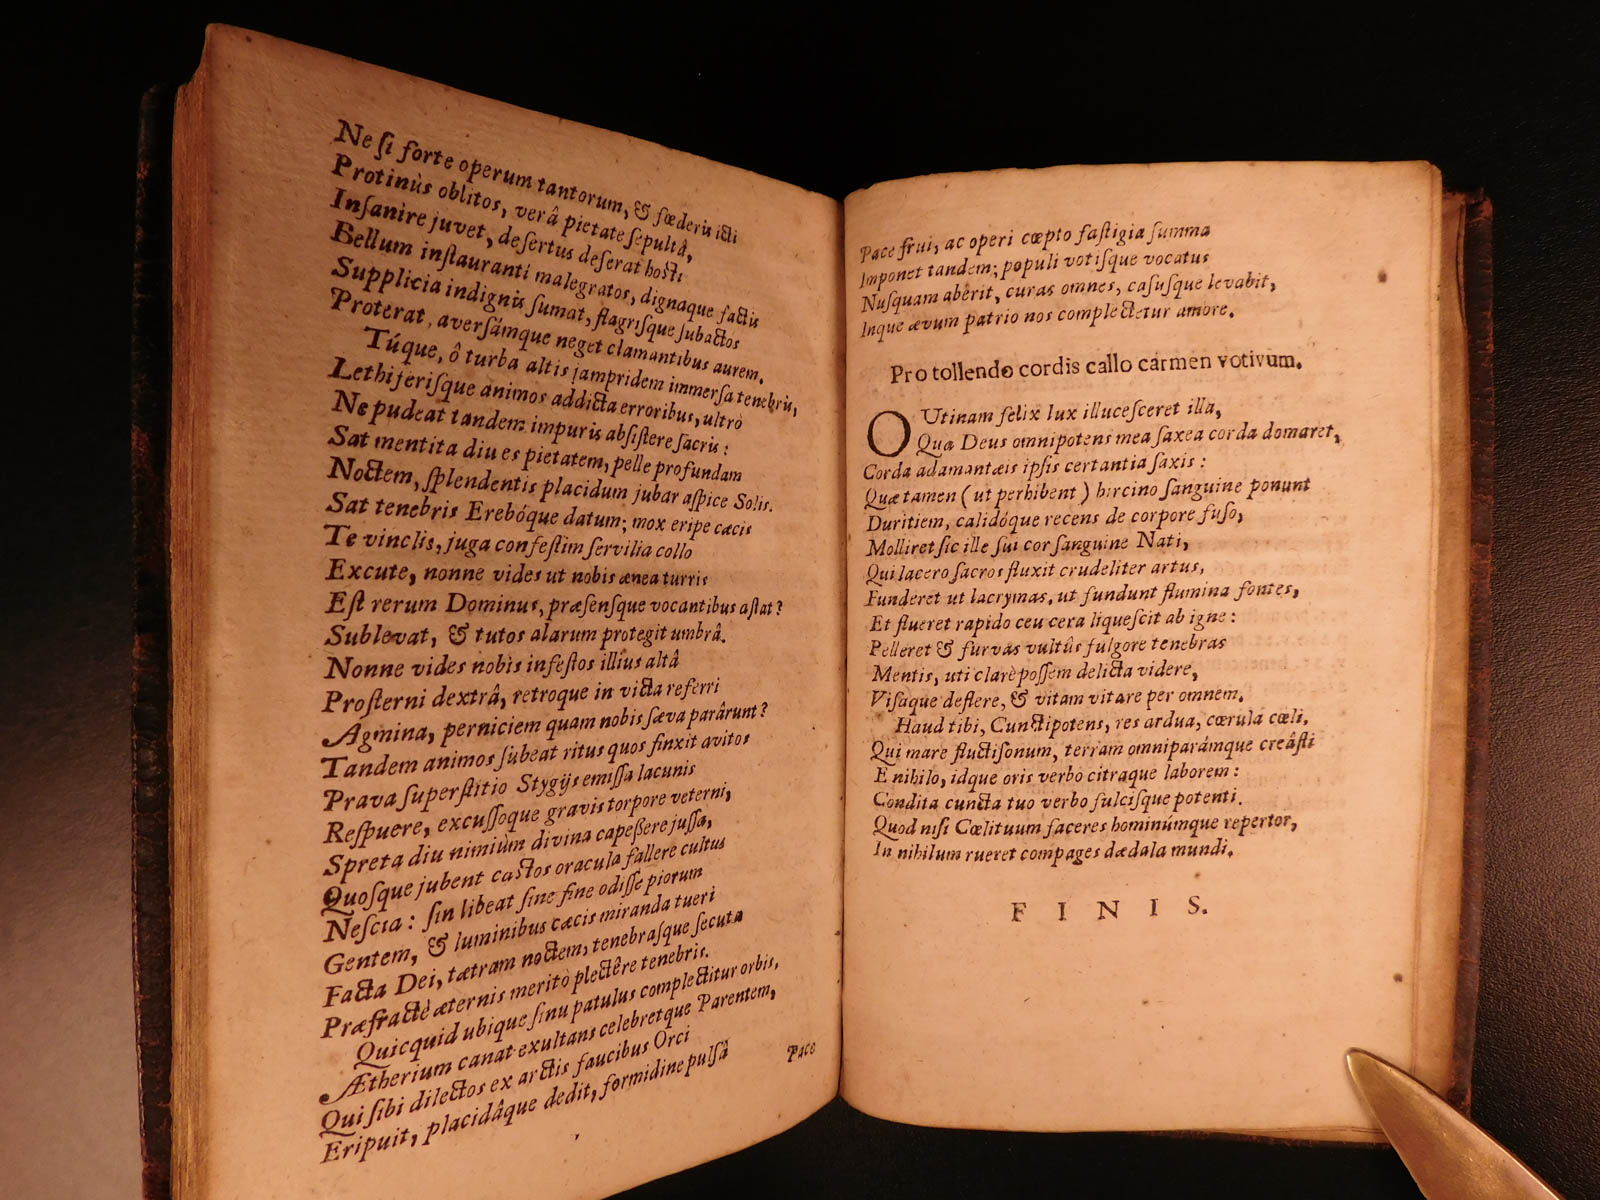 Ne ſi forte operum tantorum, & fœderis icti
Protinùs oblitos, verâ pietate ſepultâ,
Inſanire juvet, deſertus deſerat hoſti
Bellum inſtauranti malegratos, dignaque factis
Supplicia indignis ſumat, flagriſque ſubactos
Proterat, averſámque neget clamantibus aurem.
Túque, ô turba altis jampridem immerſa tenebris,
Lethijeriſque animos addicta erroribus, ultrò
Ne pudeat tandem impuris abſiſtere ſacris:
Sat mentita diu es pietatem, pelle profundam
Noctem, ſplendentis placidum jubar aſpice Solis.
Sat tenebris Erebóque datum; mox eripe cæcis
Te vinclis, juga confeſtim ſervilia collo
Excute, nonne vides ut nobis ænea turris
Eſt rerum Dominus, præſenſque vocantibus aſtat?
Sublevat, & tutos alarum protegit umbrâ.
Nonne vides nobis infeſtos illius altâ
Proſterni dextrâ, retroque in victa referri
Agmina, perniciem quam nobis ſæva parârunt?
Tandem animos ſubeat ritus quos finxit avitos
Prava ſuperſtitio Stygijs emiſſa lacunis
Reſpuere, excuſſoque gravis torpore veterni,
Spreta diu nimiùm divina capeßere juſſa,
Quoſque jubent caſtos oracula fallere cultus
Neſcia: ſin libeat ſine fine odiſſe piorum
Gentem, & luminibus cæcis miranda tueri
Facta Dei, tætram noctem, tenebraſque ſecuta
Præfractè æternis meritò plectêre tenebris.
Quicquid ubique ſinu patulus complectitur orbis,
Ætherium canat exultans celebretque Parentem,
Qui ſibi dilectos ex arctis faucibus Orci
Eripuit, placidâque dedit, formidine pulſâ
Pace
Pace frui, ac operi cœpto faſtigia ſumma
Imponet tandem; populi votiſque vocatus
Nuſquam aberit, curas omnes, caſuſque levabit,
Inque ævum patrio nos complectetur amore.
Pro tollendo cordis callo carmen votivum.
O Utinam felix lux illuceſceret illa,
Qua Deus omnipotens mea ſaxea corda domaret,
Corda adamantæis ipſis certantia ſaxis:
Quæ tamen (ut perhibent) hircino ſanguine ponunt
Duritiem, calidóque recens de corpore fuſo,
Molliret ſic ille ſui cor ſanguine Nati,
Qui lacero ſacros fluxit crudeliter artus,
Funderet ut lacrymas, ut fundunt flumina fontes,
Et flueret rapido ceu cera liqueſcit ab igne:
Pelleret & furvas vultûs fulgore tenebras
Mentis, uti clarè poſſem delicta videre,
Viſaque deflere, & vitam vitare per omnem.
Haud tibi, Cunctipotens, res ardua, cœrula cœli,
Qui mare fluctiſonum, terram omniparámque creâſti
E nihilo, idque oris verbo citraque laborem:
Condita cuncta tuo verbo fulciſque potenti.
Quod niſi Cœlituum faceres hominúmque repertor,
In nihilum rueret compages dædala mundi.
FINIS.